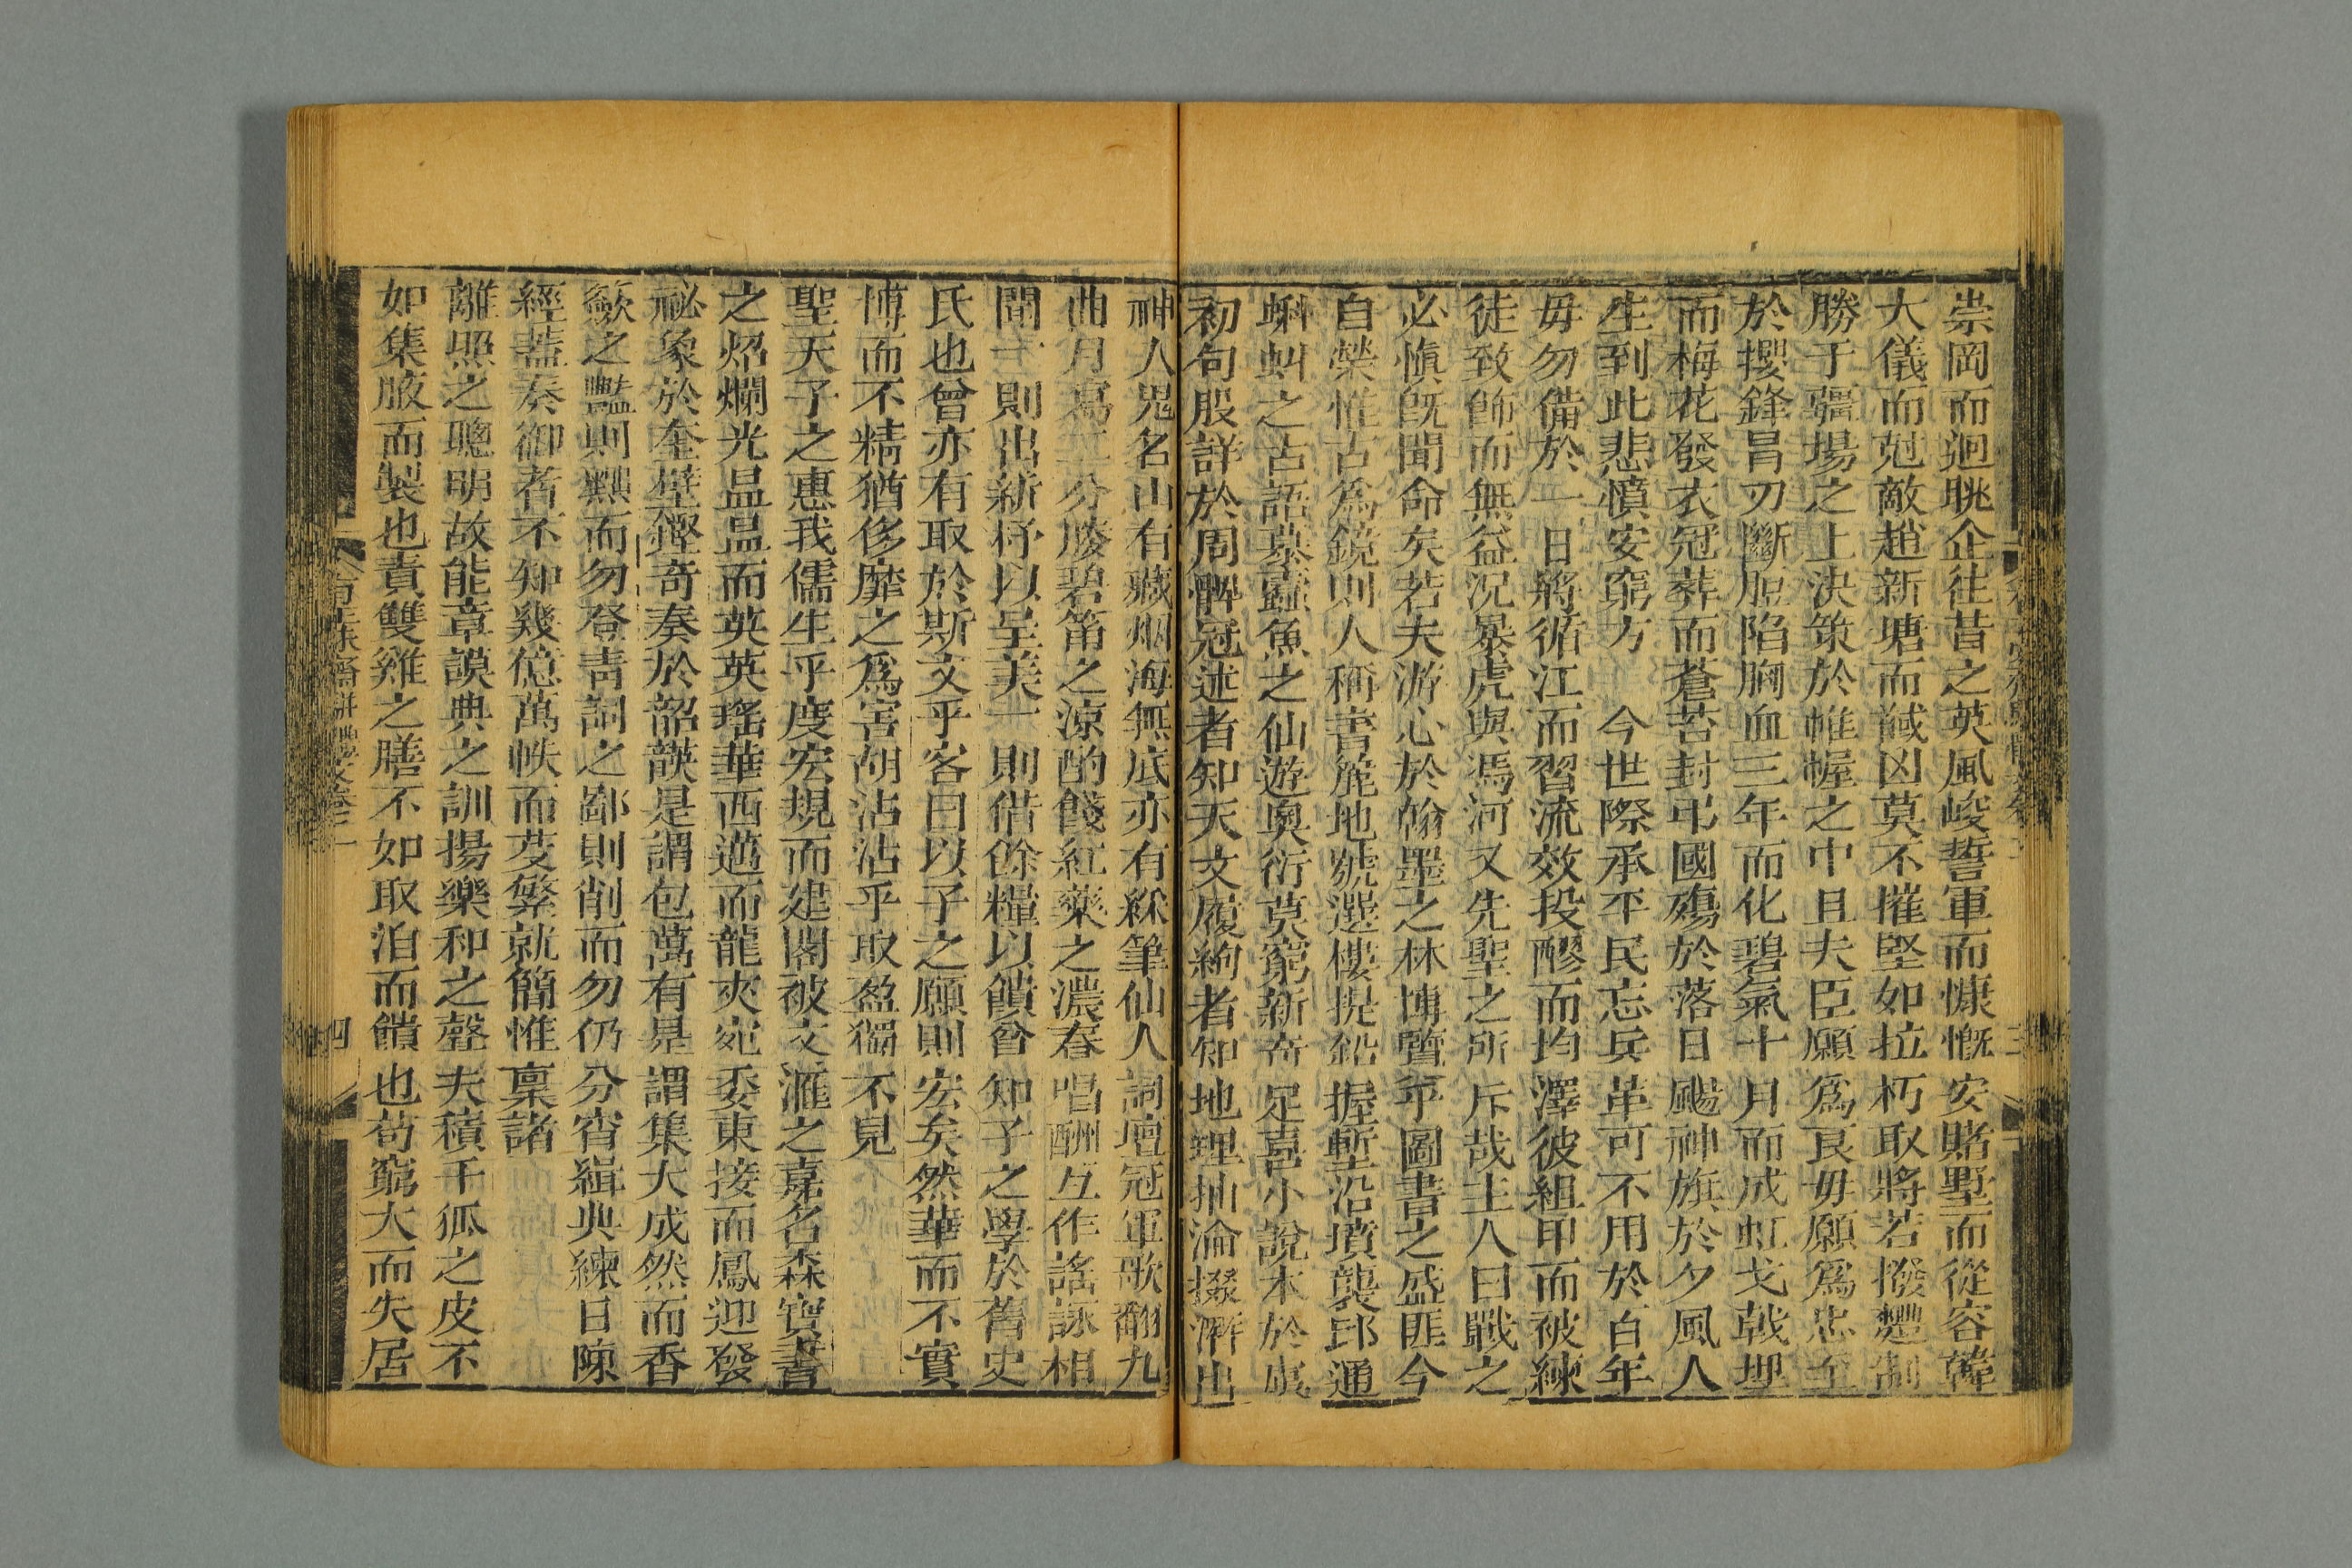 崇岡而迴眺企往昔之英風峻誓軍而慷慨安賭墅而從容韓
大儀而剋敵趙新塘而馘凶莫不摧堅如拉朽取將若撥麷制
勝于疆場之上決策於帷幄之中且夫臣願爲良毋願爲忠至
於攖鋒冒刃斷脰陷胸血三年而化碧氣十月而成虹戈戟埋
而梅花發衣冠葬而蒼苔封弔國殤於落日颺神旗於夕風人
生到此悲憤安窮方 今世際承平民忘兵革可不用於百年
毋勿備於一日將循江而習流效投醪而均澤彼組甲而被練
徒致飾而無益況暴虎與馮河又先聖之所斥哉主人曰戰之
必愼旣聞命矣若夫游心於翰墨之林博覽乎圖書之盛匪今
自榮惟古爲鏡則人稱書簏地號選樓提鉛握塹沿墳襲邱通
蝌蚪之古語慕蠹魚之仙遊奧衍莫窮新奇足喜小說本於虞
初句股詳於周髀冠述者知天文履絇者知地理抽淪掇漸出
神人鬼名山有藏烟海無底亦有綵筆仙人詞壇冠軍歌翻九
曲月寫二分勝碧笛之涼酌餞紅藥之濃春唱酬互作謠詠相
間一則出新杼以呈美一則借餘糧以饋曾知子之學於舊史
氏也曾亦有取於斯文乎客曰以子之願則宏矣然華而不實
博而不精猶侈靡之爲害胡沾沾乎取盈獨不見
聖天子之惠我儒生乎度宏規而建閣被文滙之嘉名森寶書
之炤爛光昷昷而英英瑤華西邁而龍夾宛委東接而鳳迎發
祕象於奎壁鏗奇奏於韶韺是謂包萬有是謂集大成然而香
歛之豔則黜而勿登靑詞之鄙則削而勿仍分宵緝典練日陳
經蓋奏御者不知幾億萬帙而芟繁就簡惟稟諸
離照之聰明故能章謨典之訓揚樂和之聲夫積千狐之皮不
如集腋而製也責雙雞之膳不如取泊而饋也苟窮大而失居
四